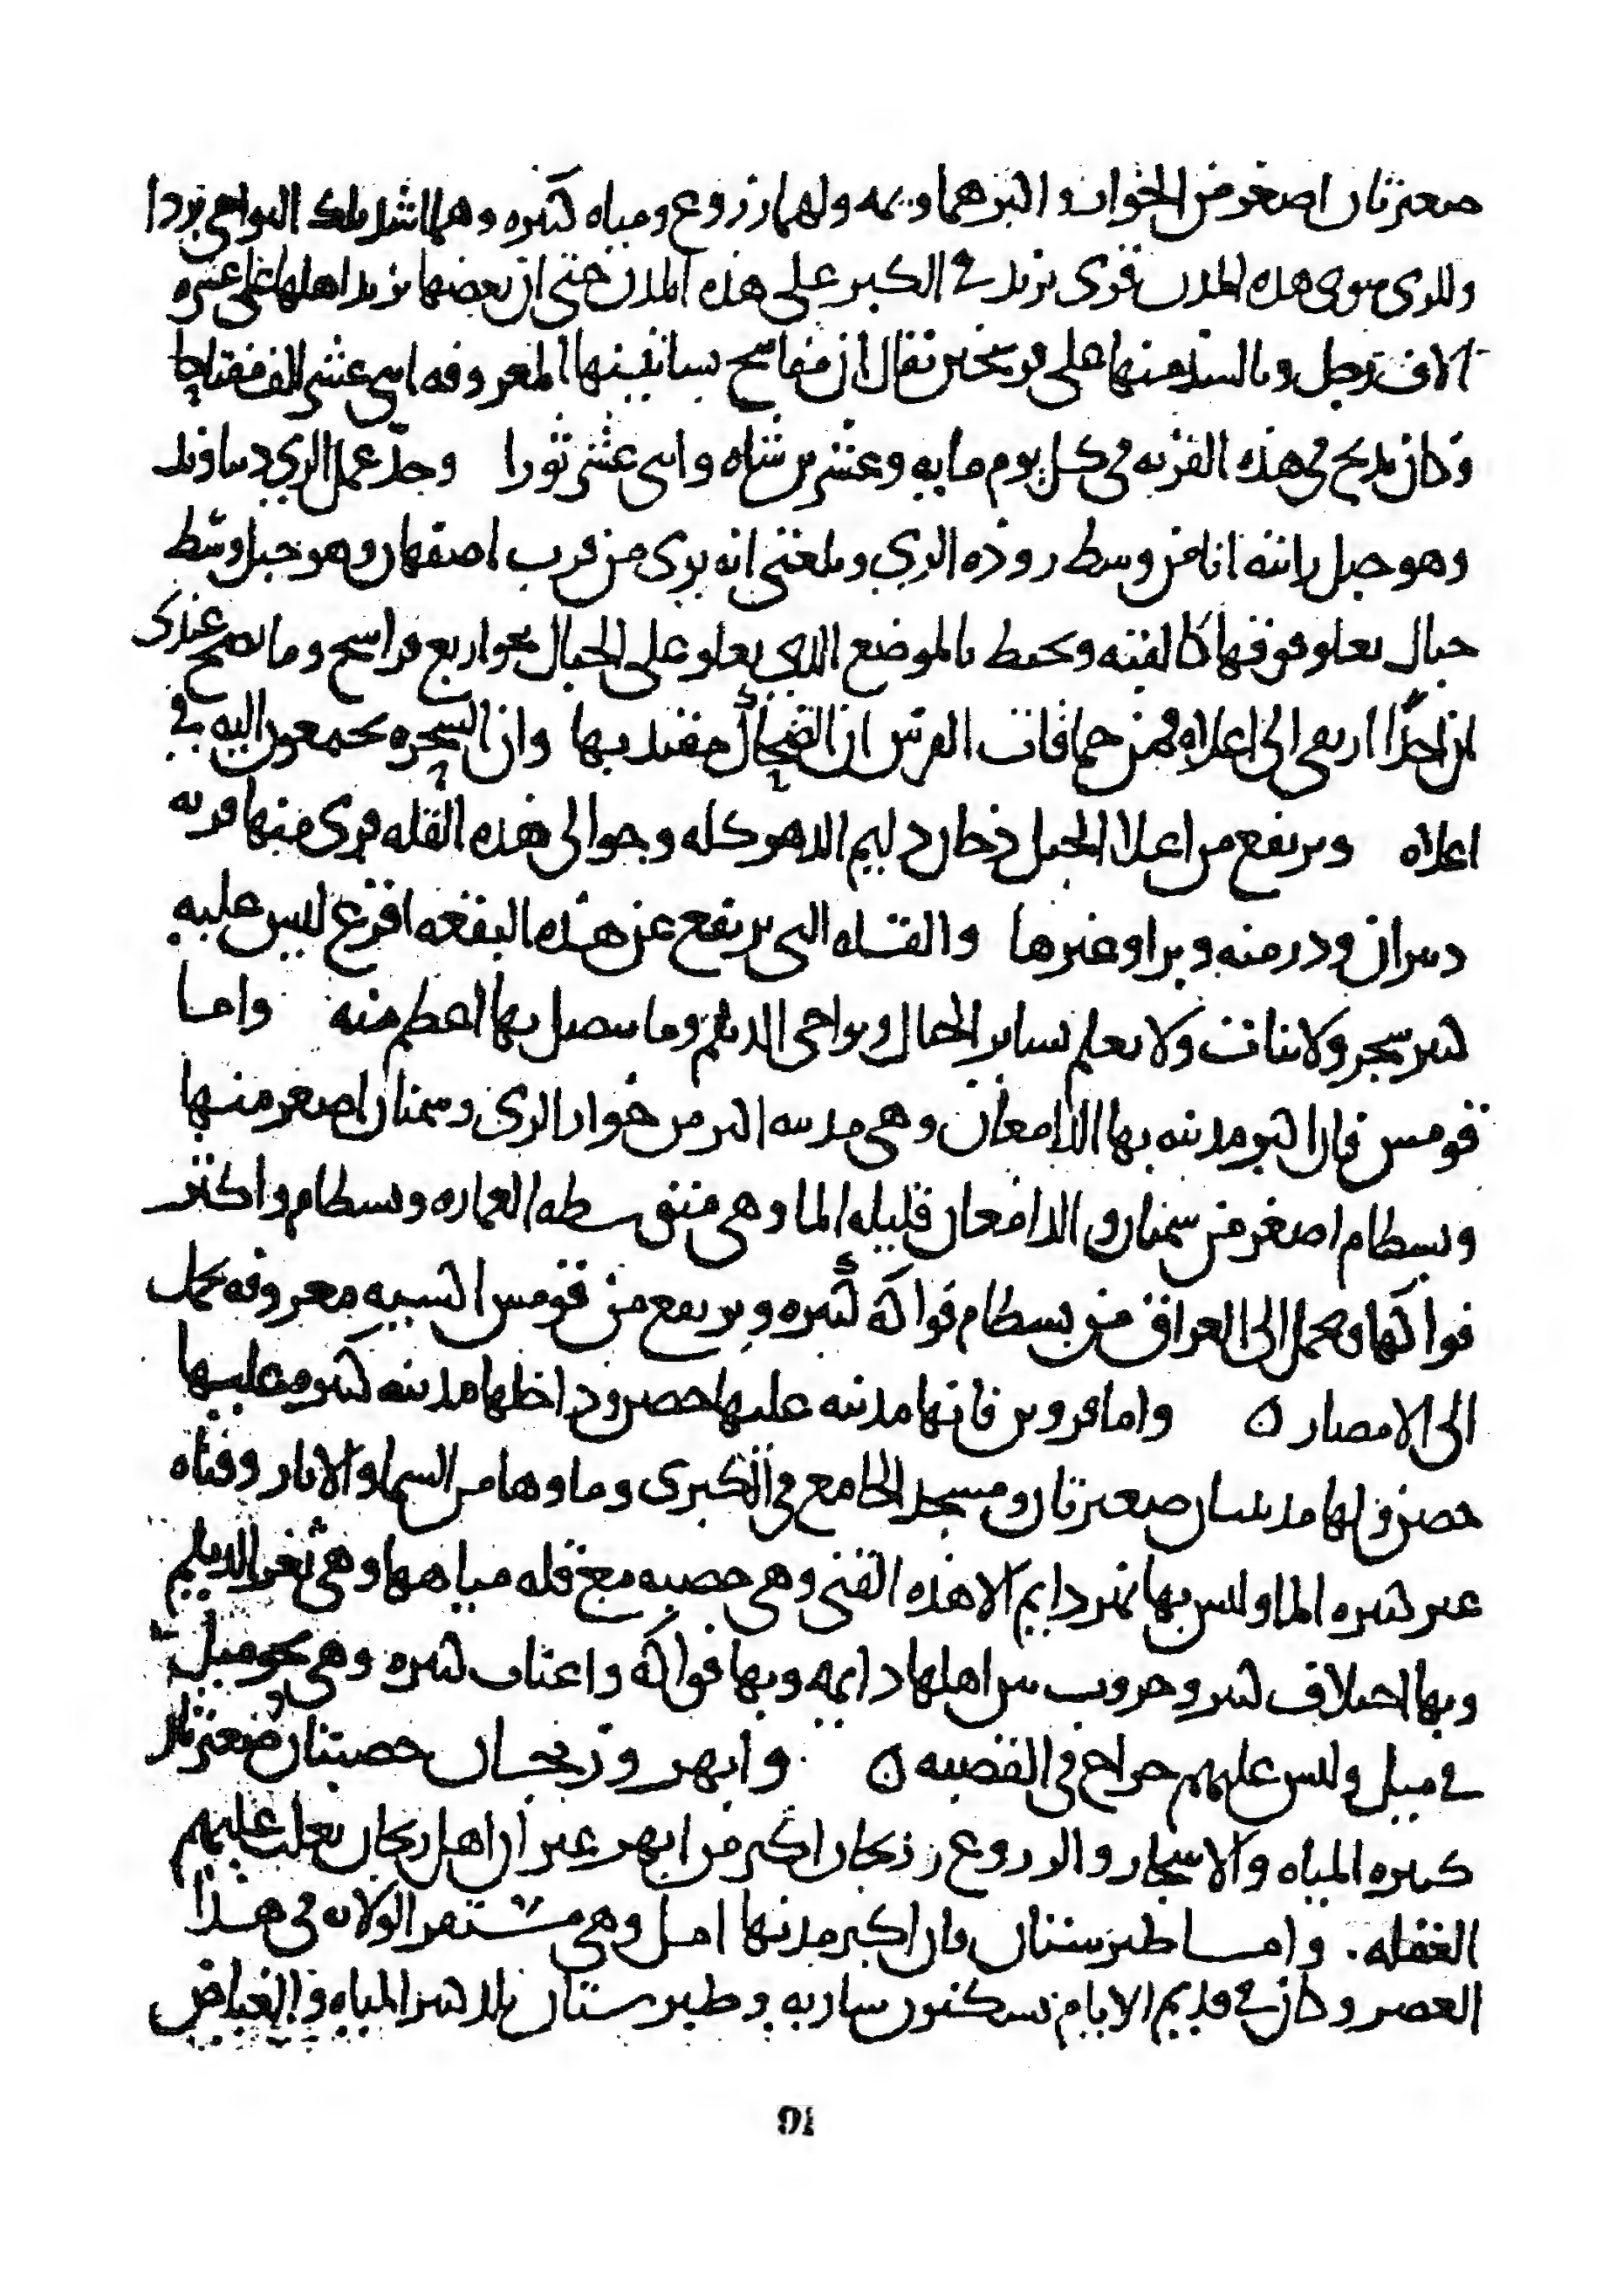 صغيرتان اصغر من الخوار واكبرهما ويمه ولهما زروع ومياه كثيره وهما اشد تلك النواحي بردا
وللري سوى هذه المدن قرى تزيد في الكبر على هذه المدن حتى ان بعضها يزيد اهلها على عشره
الاف رجل وبالسد منها على فرسخين يقال ان مفاتيح بساتينها المعروفه اثنى عشر الف مفتاحا
وكان يذبح في هذه القريه في كل يوم مايه وعشرين شاه واثنى عشر ثورا وحد عمل الري دنباوند
وهو جبل رايته انا من وسط روذه الري وبلغني انه يرى من قرب اصفهان وهو جبل وسط
جبال يعلو فوقها كالقبه ويحيط بالموضع الذي يعلو على الجبال نحو اربع فراسخ وما يصح عندي
ان احدا ارتقى الى اعلاه فمن حماقات الفرس ان الضحاك مقيد بها وان السحره يجتمعون اليه في
اعلاه ويرتفع من اعلا الجبل دخان دايم الدهر كله وحوالي هذه القله قرى منها قريه
دبيران ودرمنه وبرا وغيرها والقله التي يرتفع عن هذه البقعه اقرع ليس عليه
كثير شجر ولا نبات ولا يعلم بساير الجبال ونواحي الديلم وما يتصل بها اعظم منه واما
قومس فان اكبر مدينه بها الدامغان وهي مدينه اكبر من خوار الري وسمنان اصغر منها
وبسطام اصغر من سمنان والدامغان قليله الما وهي متوسطه العماره وبسطام واكثر
فواكهها ويحمل الى العراق من بسطام فواكه كثيره ويرتفع من قومس اكسيه معروفه تحمل
الى الامصار ه واما قزوين فانها مدينه عليها حصن وداخلها مدينه كبيره عليها
حصن ولها مدينتان صغيرتان ومسجد الجامع في الكبرى وماوها من السما والابار وقناه
غير كثيره الما وليس بها نهر دايم الا هذه القني وهي خصبه مع قله مياهها وهي ثغر الديلم
وبها اختلاف كثير وحروب بين اهلها دايمه وبها فواكه واعناب كثيره وهي نحو ميل
في ميل وليس عليهم خراج في القصبه ه وابهر وزنجان خصبتان صغيرتان
كثيره المياه والاشجار والزروع وزنجان اكبر من ابهر غير ان اهل زنجان يغلب عليهم
الغفله. واما طبرستان فان اكبر مدنها امل وهي مستقر الولاه في هذا
العصر وكان في قديم الايام يسكنون ساريه وطبرستان بلد كثير المياه والغياض